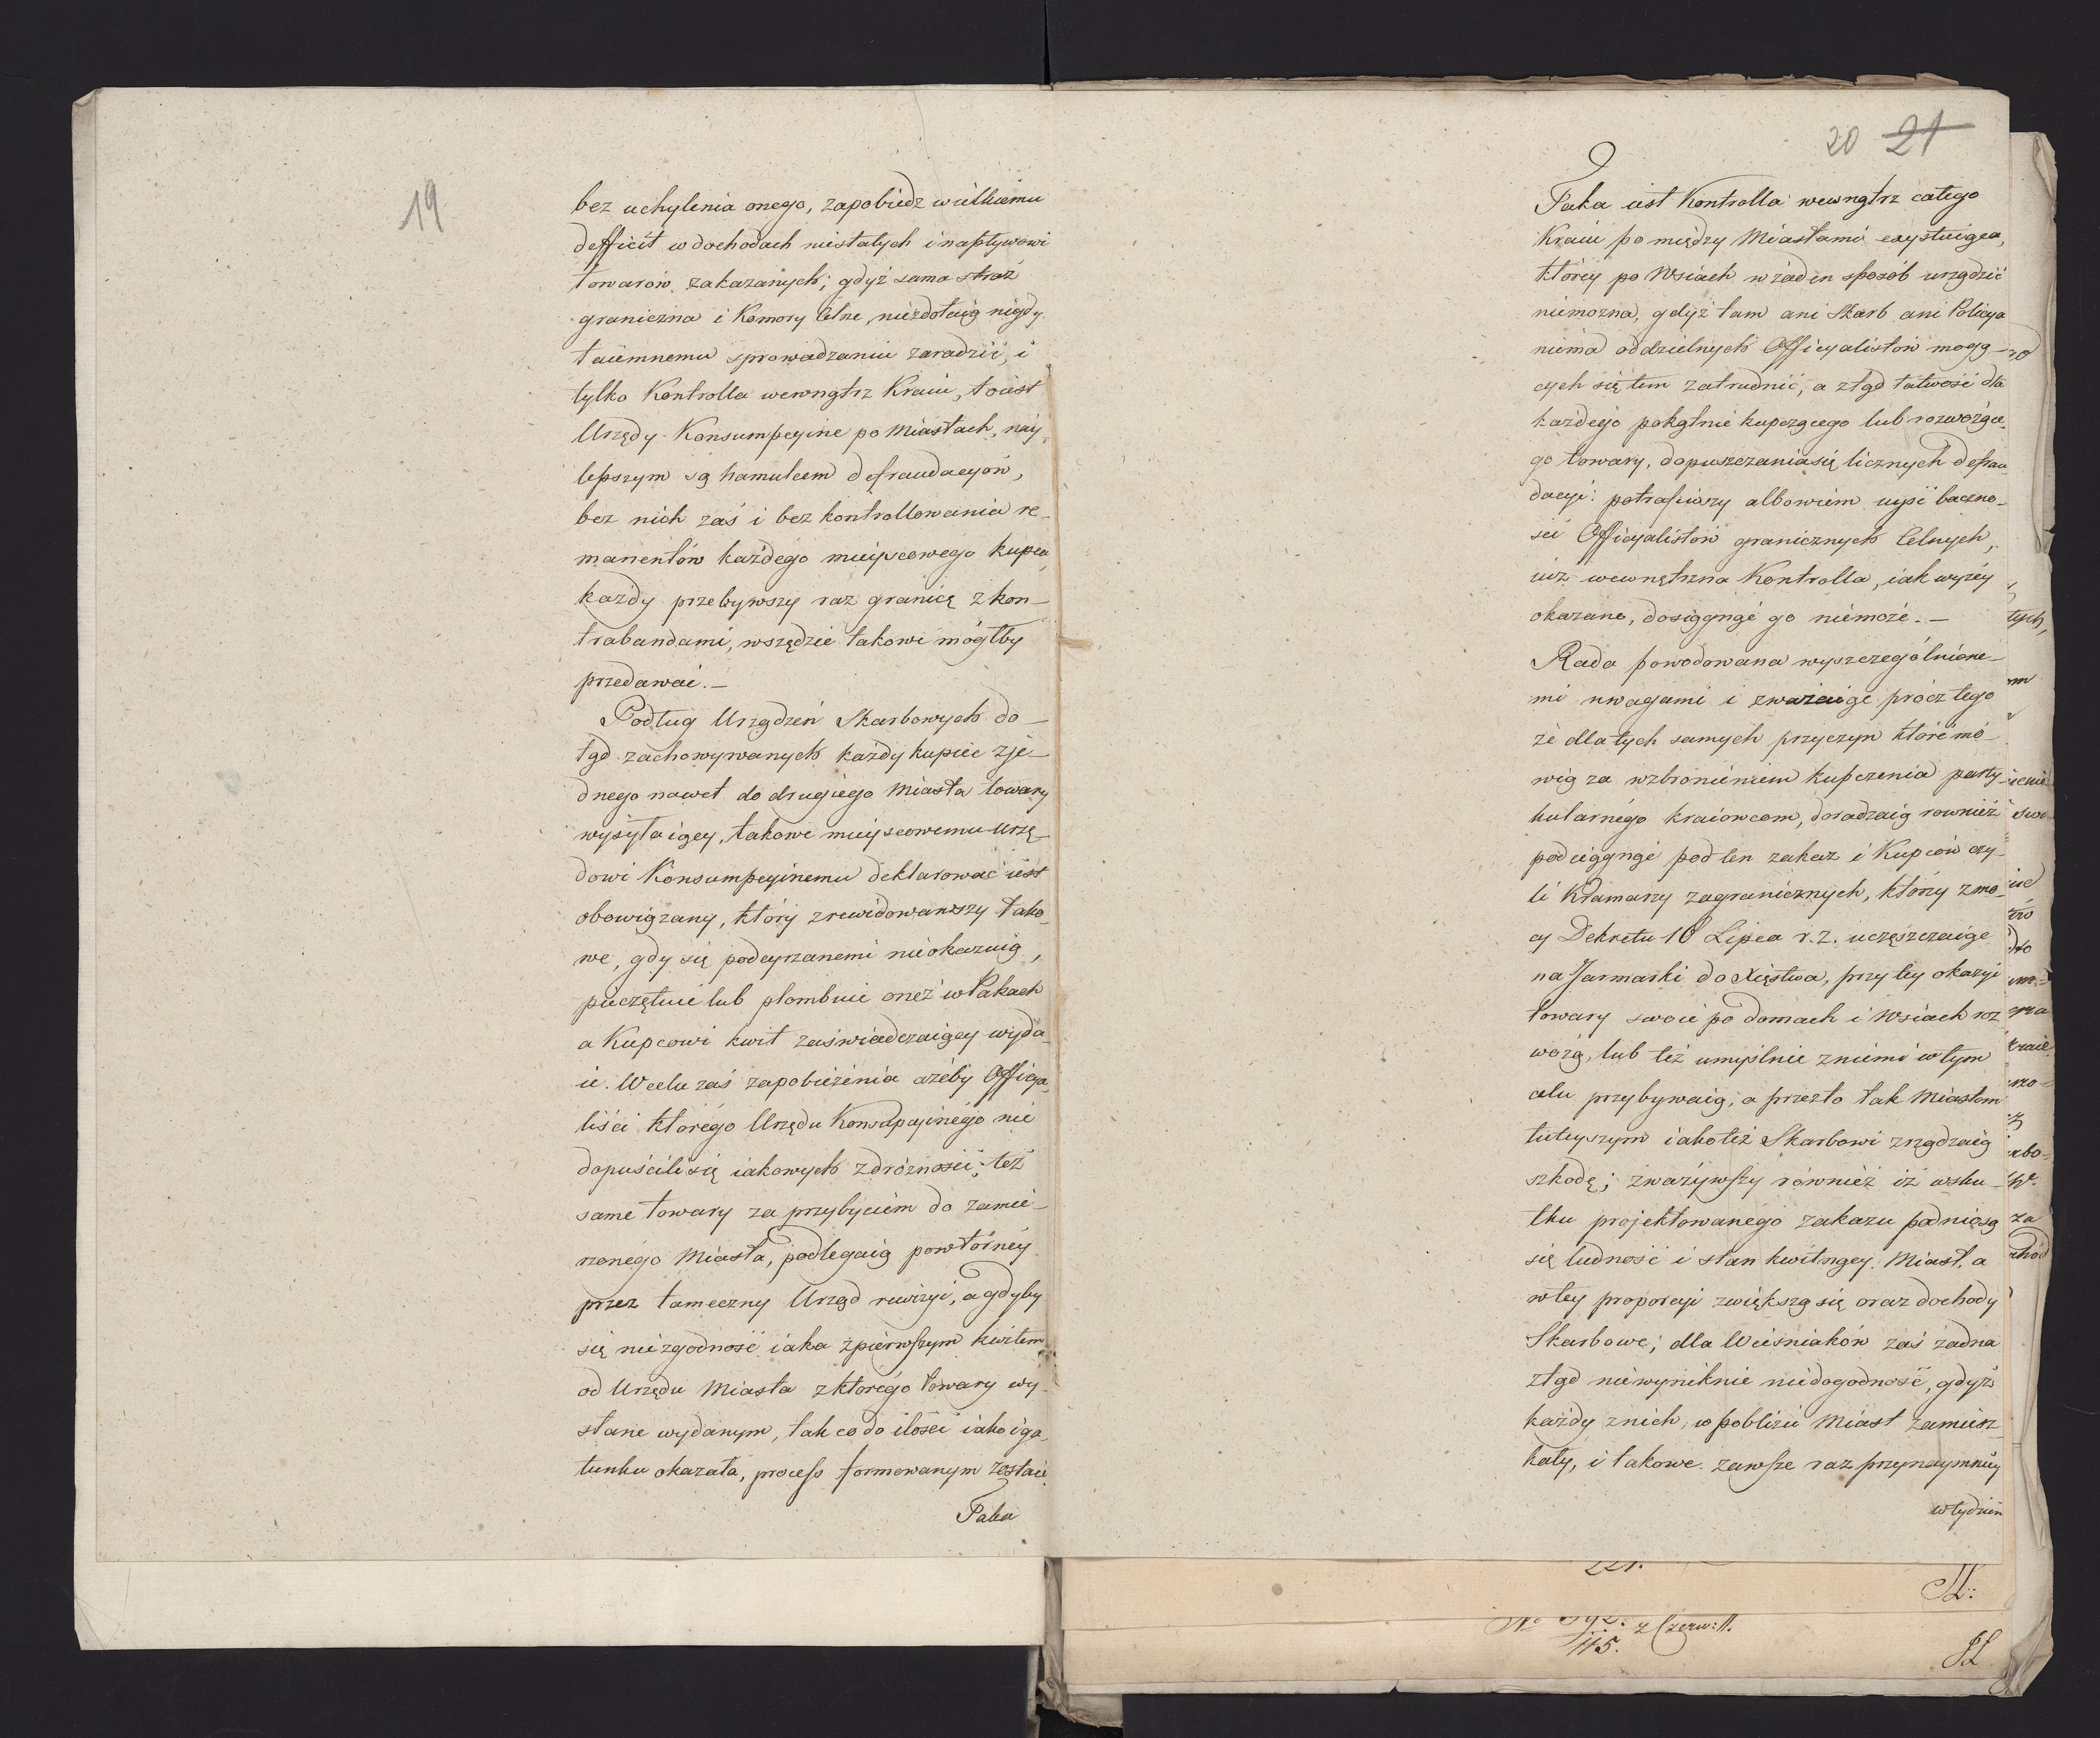 19
bez uchylenia onego, zapobiedz wielkiemu
defficit w dochodach niestałych i napływowi
towarów zakazanych; gdyż sama straż
graniczna i Komory Celne, niezdołaią nigdy
taiemnemu sprowadzaniu zaradzić, i
tylko Kontrolla wewnątrz Kraiu, to iest
Urzędy Konsumpcyine po Miastach, nay
lepszym są hamulcem defraudacyów,
bez nich zaś i bez kontrollowania re-
manentów każdego mieyscowego kupca,
każdy przebywszy raz granicę z kon-
trabandami, wszędzie takowe mógłby
przedawać.-
Podług Urządzeń Skarbowych do-
tąd zachowywanych każdy kupiec z je-
dnego nawet do drugiego Miasta towary
wysyłaiący, takowe mieyscowemu Urzę-
dowi Konsumpcyinemu deklarować iest
obowiązany, który zrewidowawszy tako-
we, gdy się podeyrzanemi nieokazuią,
pieczętuie lub plombuie oneż w Pakach
a Kupcowi kwit zaświadczaiący wyda-
ie. W celu zaś zapobieżenia ażeby Officya-
liści którégo Urzędu Konsumpcyinégo nie
dopuścili się iakowych zdrożności; też
same towary za przybyciem do zamie-
rzonego Miasta, podlegaią powtórnéy
przez tameczny Urząd rewizyi, a gdyby
się niezgodność iaka z pierwszym kwitem
od Urzędu Miasta z którego towary wy-
słane wydanym, tak co do ilości iako i ga-
tunku okazała, process formowanym zostaie.
Taka
20 21
Taka iest Kontrolla wewnątrz całego
Kraiu pomiędzy Miastami exystuiąca,
któréy po Wsiach w żaden sposób urządzić
niemożna, gdyż tam ani Skarb ani Policya
niema oddzielnych Officyalistów mogą-
cych się tem zatrudnić, a ztąd łatwość dla
każdego pokątnie kupczącego lub rozwożące-
go towary, dopuszczania się licznych defrau
dacyi: potrafiwszy albowiem uyść baczno-
ści Officyalistów granicznych Celnych,
iuż wewnętrzna Kontrolla, iak wyżéy
okazano, dosięgnąć go niemoże.-
Rada powodowana wyszczególnione-
mi uwagami i zważaiąc prócz tego
że dla tych samych przyczyn które mó-
wią za wzbronieniem kupczenia party-
kularnégo kraiowcom, doradzaią również
podciągnąć pod ten zakaz i Kupców czy-
li Kramarzy zagranicznych, którzy z mo
cy Dekretu 10 Lipca r. z. uczęszczaiąc
na Jarmarki do Xięstwa, przy tey okazyi
towary swoie po domach i Wsiach roz
wożą, lub też umyślnie z niemi w tym
celu przybywaią; a przezto tak Miastom
tuteyszym iako też Skarbowi zrządzaią
szkodę; zważywszy również iż w sku-
tku projektowanégo zakazu podniosą
się ludność i stan kwitnący Miast, a
w tey proporcyi zwiększą się oraz dochody
Skarbowe; dla Wieśniaków zaś żadna
ztąd niewyniknie niedogodność, gdyż
każdy z nich, w pobliżu Miast zamiesz
kały, i takowe zawsze raz przynaymniéy
w tydzień
221.
z Czerw: 11.
115.